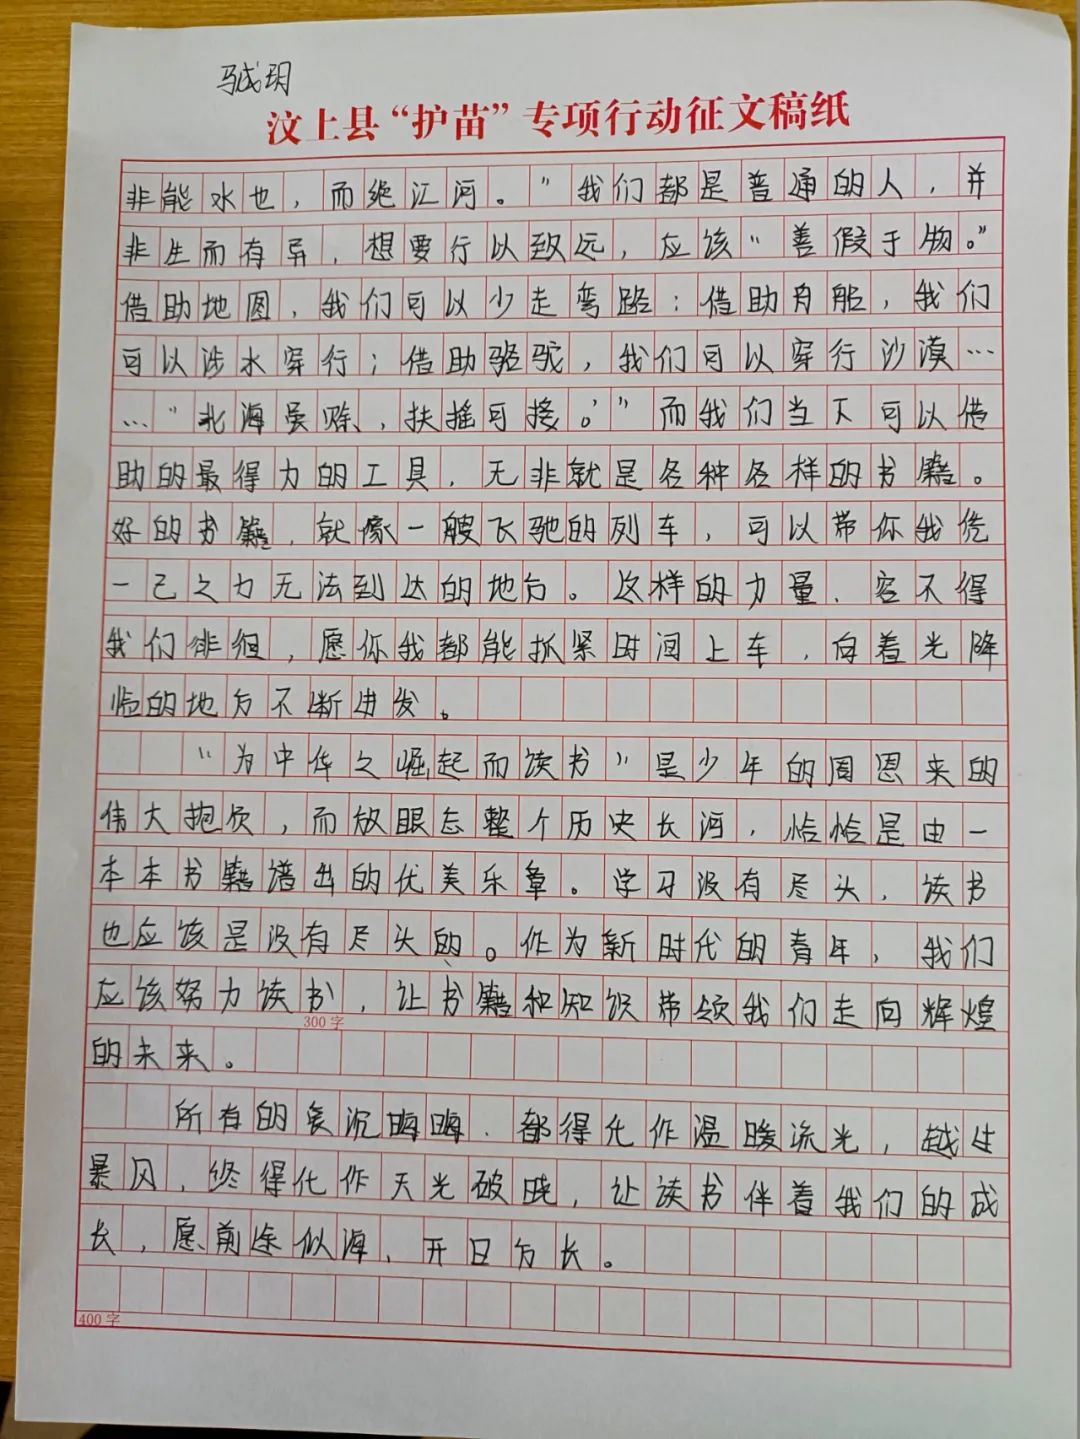 马成玥
汶上县“护苗”专项行动征文稿纸
非能水也，而绝江河。”我们都是普通的人，并
非生而有异，想要行以致远，应该“善假于物。”
借助地图，我们可以少走弯路；借助舟船，我们
可以涉水穿行；借助骆驼，我们可以穿行沙漠…
…“北海虽赊，扶摇可接。”而我们当下可以借
助的最得力的工具，无非就是各种各样的书籍。
好的书籍，就像一艘飞驰的列车，可以带你我凭
一己之力无法到达的地方。这样的力量，容不得
我们徘徊，愿你我都能抓紧时间上车，向着光降
临的地方不断进发。
“为中华之崛起而读书”是少年的周恩来的
伟大抱负，而放眼态整个历史长河，恰恰是由一
本本书籍谱出的优美乐章。学习没有尽头，读书
也应该是没有尽头的。作为新时代的青年，我们
应该努力读书，让书籍和知识带领我们走向辉煌
300字
的未来。
所有的哀沉晦晦，都得化作温暖流光，越过
暴风，终得化作天光破晓，让读书伴着我们的成
长，愿前途似海，开日方长。
400字